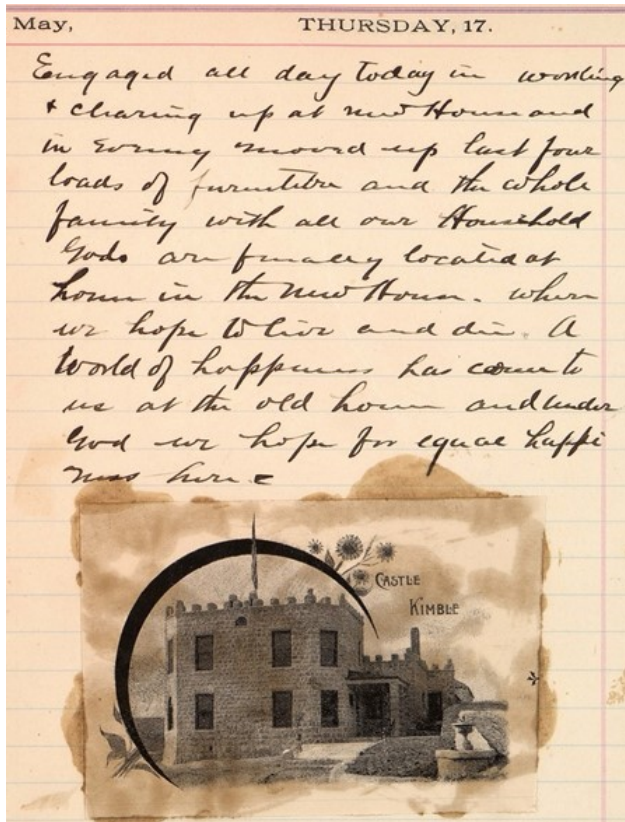 May, THURSDAY, 17.
Engaged all day today in working
& clearing up at new House and
in evening moved up last four
loads of furniture and the whole
family with all our Household
Gods are finally located at
home in the New House. where
we hope to live and die. A
World of happiness has come to
us at the old home and under
God we hope for equal happi
ness here
CASTLE
KIMBLE